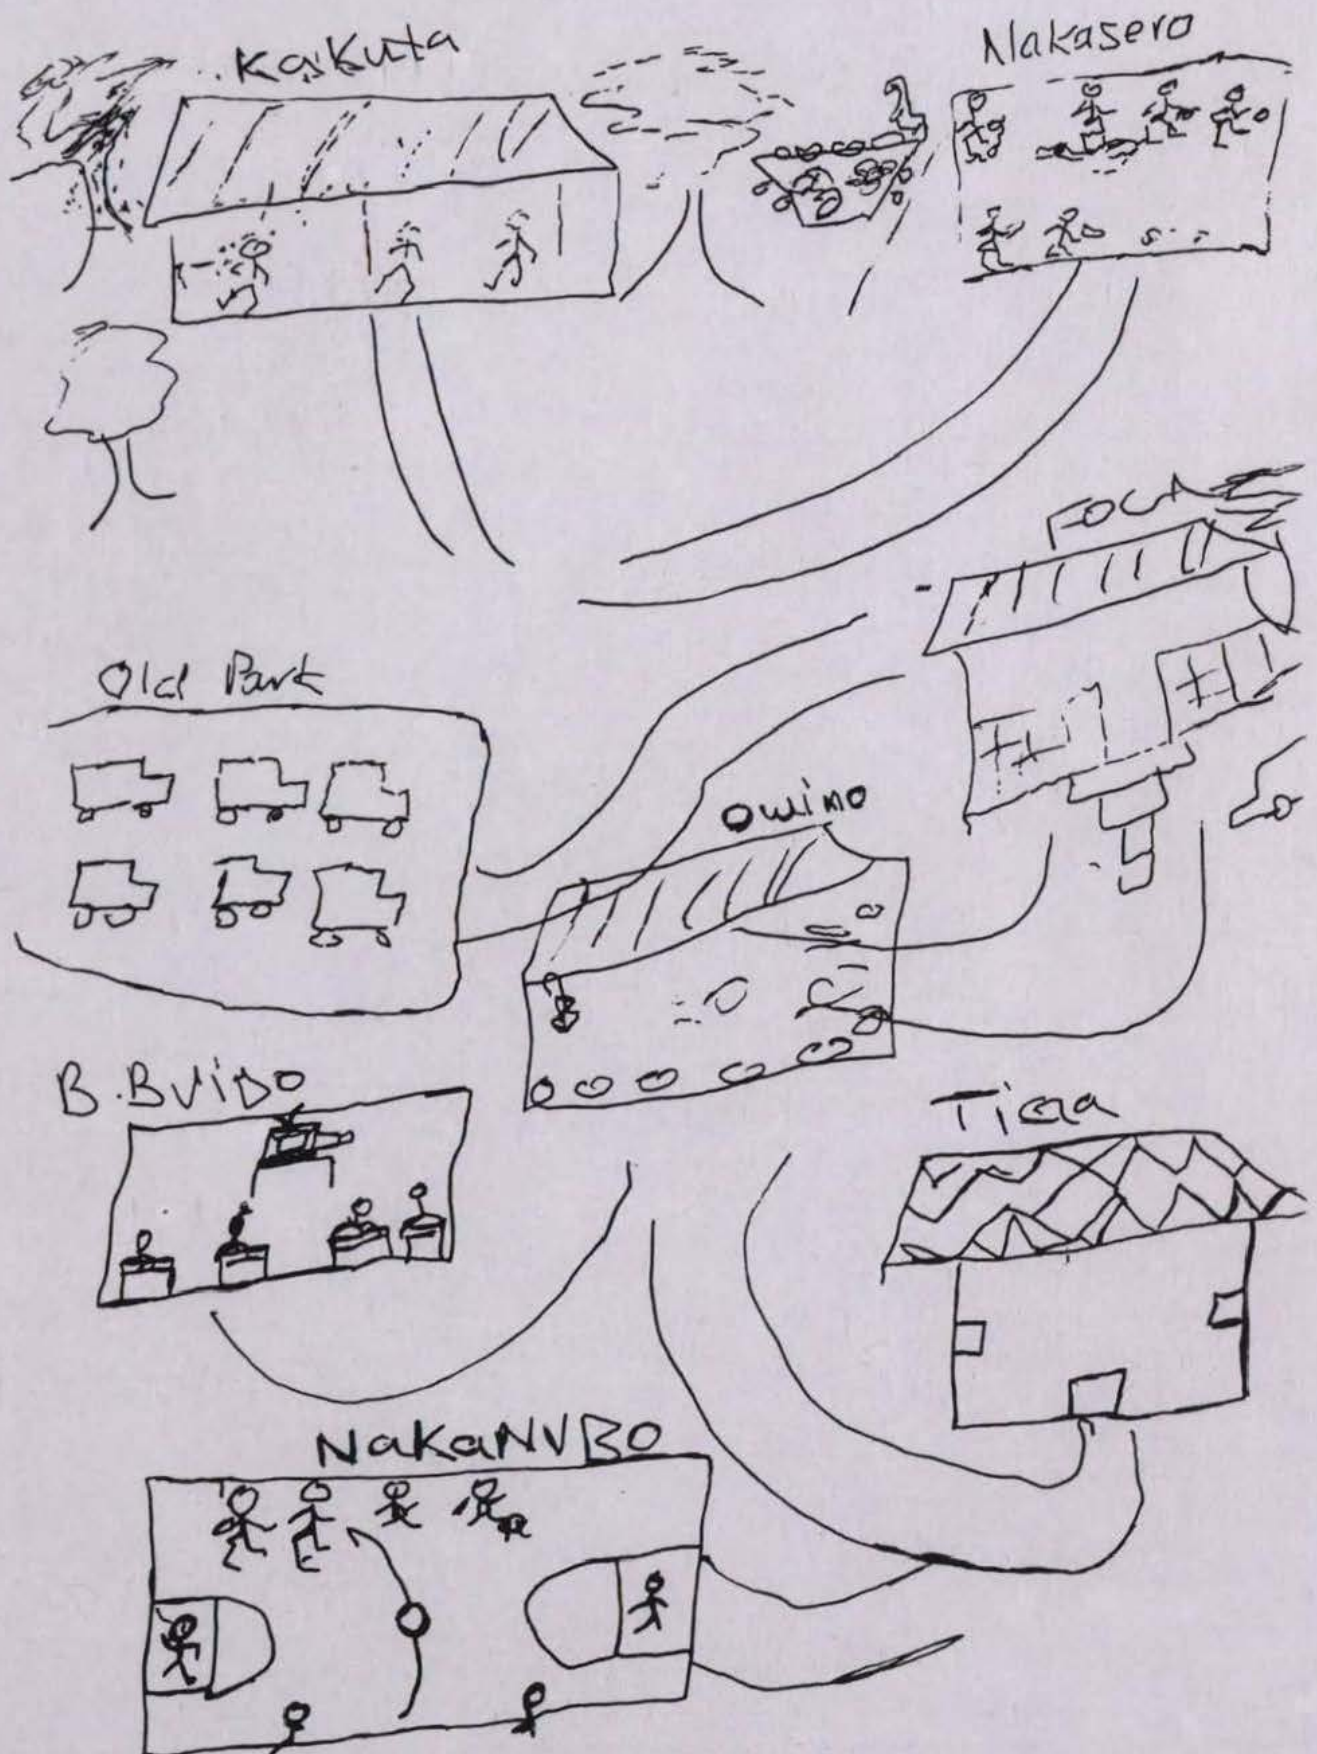 Kakuta
Nakasero
FOCA
Old Park
Owino
B.BVIDO
Tiera
NaKaNVBO